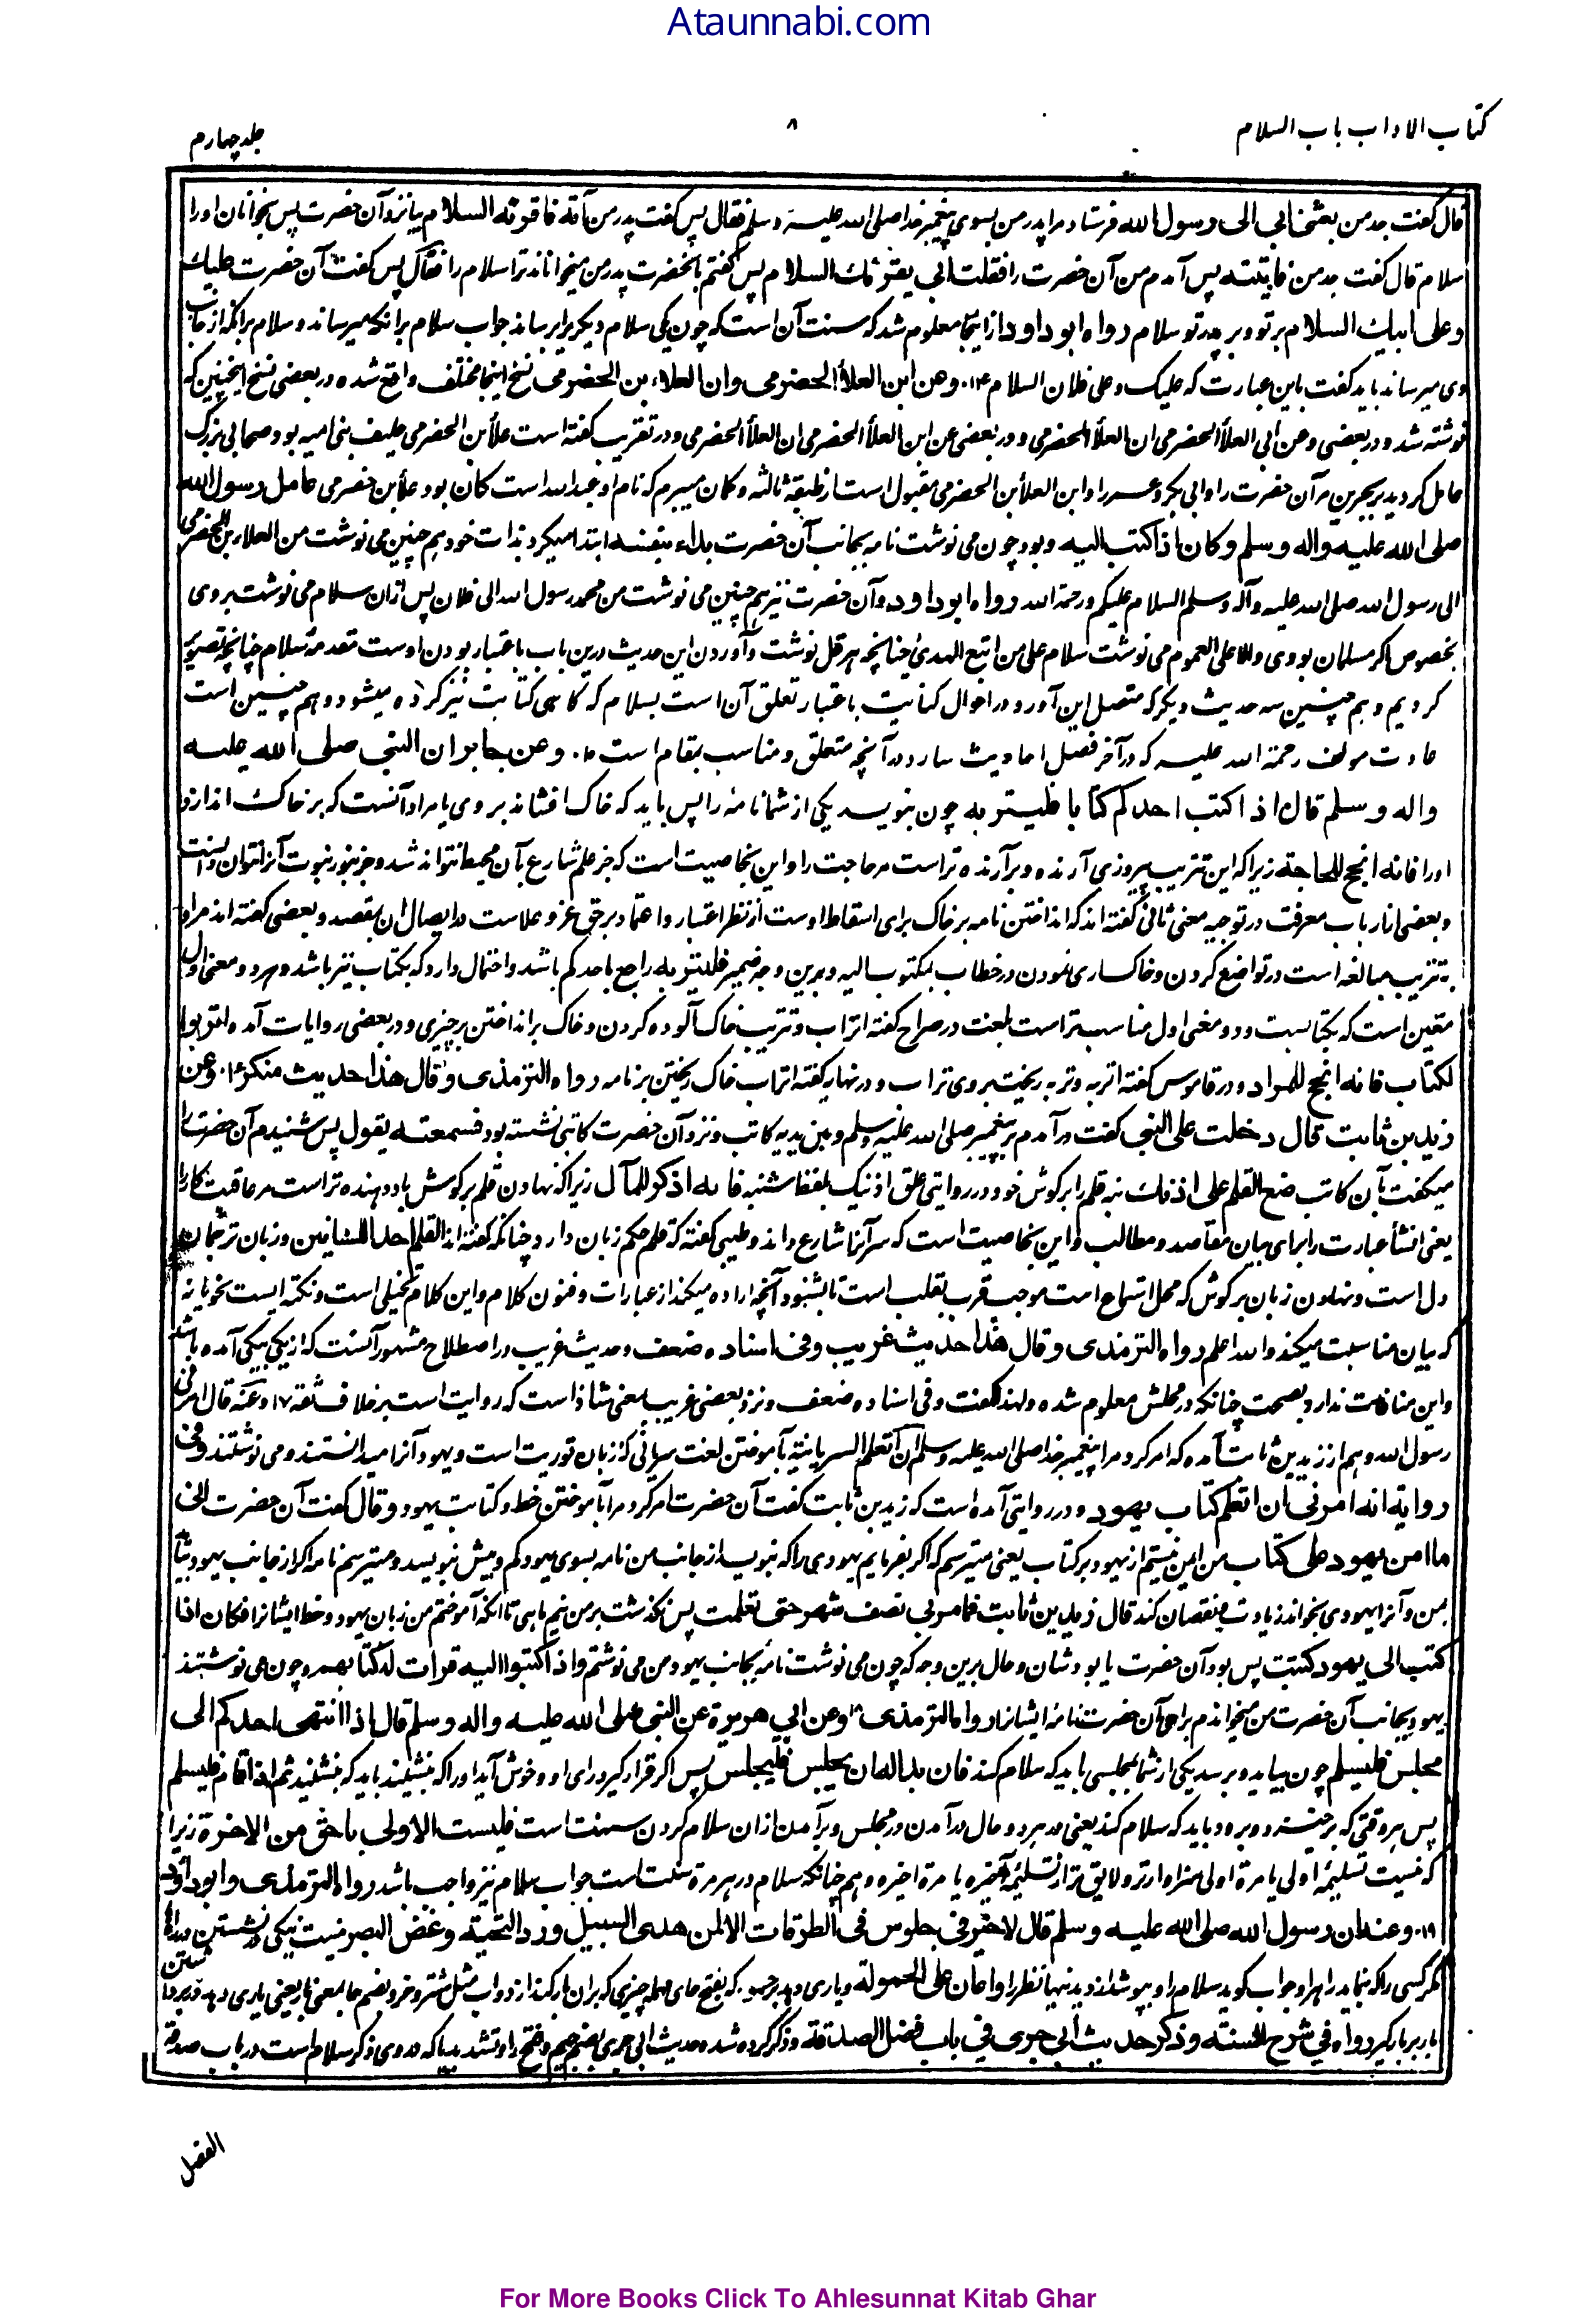 Ataunnabi.com
کتاب الاداب باب السلام
۸
جلد چهارم
قال گفت جد من بعثنی ابی الی رسول الله فرستاد مرا پدر من بسوی پیغمبر خدا صلی الله علیه و سلم فقال پس گفت پدر من ائته فاقرئه السلام بیا نزد آن حضرت پس بخوانان او را
سلام قال گفت جد من فاتیته پس آمدم من آن حضرت را فقلت ابی یقرئك السلام پس گفتم بآنحضرت پدر من میخواناند ترا سلام را فقال پس گفت آن حضرت علیك
و علی ابیك السلام بر تو و بر پدر تو سلام رواه ابو داود ازینجا معلوم شد که سنت آن است که چون یکی سلام دیگریرا برساند جواب سلام برانکه میرساند و سلام برانکه از جانب
وی میرساند باید گفت باین عبارت که علیک و علی فلان السلام ۱۴. وعن ابن العلاء الحضرمی وان العلاء بن الحضرمی نسخ اینجا مختلف واقع شده در بعضی نسخ اینچنین که
نوشته شد و در بعضی وعن ابی العلاء الحضرمی ان العلاء الحضرمی و در بعضی عن ابن العلاء الحضرمی ان العلاء الحضرمی و در تقریب گفته است علاء بن الحضرمی حلیف بنی امیه بود و صحابی بزرگ
عامل گردید بر بحرین مر آن حضرت را و ابی بکر و عمر را و ابن العلاء بن الحضرمی مقبول است از طبقهٔ ثالثه و گمان میبرم که نام او عبدالله است کان بود علاء بن حضرمی عامل رسول الله
صلی الله علیه واله وسلم وکان اذا کتب الیه وبود چون می نوشت نامه بجانب آن حضرت بداء بنفسه ابتدا میکرد بذات خود همچنین می نوشت من العلاء بن الحضرمی
الی رسول الله صلی الله علیه وآله وسلم السلام علیکم ورحمة الله رواه ابو داود وآن حضرت نیز همچنین می نوشت من محمد رسول الله الی فلان پس ازان سلام می نوشت بر وی
بخصوص اگر مسلمان بودی والا علی العموم می نوشت سلام علی من اتبع الهدی چنانچه بهرقل نوشت و آوردن این حدیث درین باب باعتبار بودن اوست مقدمهٔ سلام چنانچه تصویر
کردیم و همچنین سه حدیث دیگر که متصل این آورد در احوال کتابت باعتبار تعلق آن است بسلام که گاهی کتابت نیز کرده میشود و همچنین است
عادت مولف رحمة الله علیه که در آخر فصل احادیث می آرد در آنچه متعلق و مناسب بمقام است ۱۵. وعن جابر ان النبی صلی الله علیه
واله وسلم قال اذا کتب احدکم کتابا فلیتربه چون بنویسد یکی از شما نامهٔ را پس باید که خاک افشاند بر وی یا مراد آنست که بر خاک اندازد
او را فانه انجح للحاجة زیرا که این تتریب پیروزی آرنده و برآرنده تر است مر حاجت را و این بخاصیت است که جز علم شارع بآن محیط نتواند شد و جز بنور نبوت آنرا نتوان دانست
و بعضی از ارباب معرفت در توجیه معنی ثانی گفته اند که انداختن نامه بر خاک برای اسقاط اوست از نظر اعتبار و اعتماد بر حق عز و علا ست در ایصال ان بمقصد و بعضی گفته اند مراد
به تتریب مبالغه است در تواضع کردن و خاکساری نمودن در خطاب بمکتوب الیه و برین وجه ضمیر فلیتربه راجع باحدکم باشد و احتمال دارد که بکتاب نیز باشد و در هر دو معنی اول
متعین است که بکتابست و دو معنی اول مناسب تر است بلغت در صراح گفته اتراب و تتریب خاک آلوده کردن و خاک بر انداختن بر چیزی و در بعضی روایات آمده اتربوا
لکتاب فانه انجح للمراد و در قاموس گفته اتربه وتربه ریخت بروی تراب و در نهایه گفته اتراب خاک ریختن بر نامه رواه الترمذی وقال هذا حدیث منکر ۱۶. وعن
زید بن ثابت قال دخلت علی النبی گفت در آمدم بر پیغمبر صلی الله علیه وسلم وبین یدیه کاتب ونزد آن حضرت کاتبی نشسته بود فسمعته یقول پس شنیدم آن حضرت را
میگفت بآن کاتب ضع القلم علی اذنك بنه قلم را بر گوش خود و در روایتی علی اذنیک بلفظ تثنیه فانه اذکر للمآل زیرا که نهادن قلم بر گوش یاد دهنده تر است مر عاقبت کار را
یعنی انشاء عبارت را برای بیان مقاصد و مطالب و این بخاصیت است که سر آنرا شارع داند و طیبی گفته که قلم حکم زبان دارد چنانکه گفته اند القلم احد اللسانین و زبان ترجمان
دل است و نهادن زبان بر گوش که محل استماع است موجب قرب بقلب است تا بشنود آنچه اراده میکند از عبارات و فنون کلام و این کلام تخیلی است و نکته ایست نحویانه
که بیان مناسبت میکند والله اعلم رواه الترمذی وقال هذا حدیث غریب وفی اسناده ضعف و حدیث غریب در اصطلاح مشهور آنست که از یکی بیکی آمده باشد
و این منافات ندارد بصحت چنانکه در محلش معلوم شده ولهذا گفت وفی اسناده ضعف ونزد بعضی غریب بمعنی شاذ است که روایت است بر خلاف ثقه ۱۷ وعنه قال امرنی
رسول الله وهم از زید بن ثابت آمده که امر کرد مرا پیغمبر خدا صلی الله علیه وسلم ان اتعلم السریانیة بآموختن لغت سریانی که زبان توریت است و یهود آنرا میدانستند و می نوشتند وفی
روایة انه امرنی ان اتعلم کتاب یهود و در روایتی آمده است که زید بن ثابت گفت آن حضرت امر کرد مرا بآموختن خط و کتابت یهود وقال گفت آن حضرت انی
ما امن یهود علی کتاب من امین نیستم از یهود بر کتاب یعنی میترسم که اگر بفرمایم یهودی را که بنویسد از جانب من نامه بسوی یهود کم و بیش نبویسد و میترسم نامه اگر از جانب یهود بیاید
بمن و آنرا یهودی بخواند زیادت و نقصان کند قال زید بن ثابت فما مر بی نصف شهر حتی تعلمت پس نگذشت بر من نیم ماهی تا انکه آموختم من زبان یهود و خط ایشانرا فکان اذا
کتب الی یهود کتبت پس بود آن حضرت یا بود شان و حال برین وجه که چون می نوشت نامهٔ بجانب یهود من می نوشتم واذا کتبوا الیه قرات له کتابهم و چون می نوشتند
یهود بجانب آن حضرت من میخواندم برای آن حضرت نامهٔ ایشانرا رواه الترمذی ۱۸ وعن ابی هریرة عن النبی صلی الله علیه واله وسلم قال اذا انتهی احدکم الی
مجلس فلیسلم چون بیاید و برسد یکی از شما بمجلسی باید که سلام کند فان بدا له ان یجلس فلیجلس پس اگر قرار گیرد رای او و خوش آید او را که بنشیند باید که بنشیند ثم اذا قام فلیسلم
پس هر وقتی که برخیزد و برود باید که سلام کند یعنی در هر دو حال در آمدن در مجلس و برآمدن ازان سلام کردن سنت است فلیست الاولی باحق من الاخرة زیرا
که نیست تسلیمهٔ اولی یا مرة اولی سزاوارتر و لایق تر از تسلیمهٔ اخیره یا مرة اخیره و هم چنانکه سلام در هر مرة سنت است جواب سلام نیز واجب باشد رواه الترمذی وابو داود
۱۹. وعنه ان رسول الله صلی الله علیه وسلم قال لا خیر فی جلوس فی الطرقات الا لمن هدی السبیل ورد التحیة وغض البصر نیست نیکی در نشستن در راهها
مگر کسی را که بنماید راه را و جواب گوید سلام را و بپوشاند دیدنیها نظر را واعان علی الحمولة و یاری دهد بر حموله که بفتح حای مهمله چیزی که بران بار کنند از دواب مثل شتر و خر و بضم حا بمعنی بار یعنی یاری دهد در برداشتن
بار بر بارگیر رواه فی شرح السنة وذکر حدیث ابی جری فی باب فضل الصدقة وذکر کرده شده حدیث ابی جری بضم جیم وفتح را وتشدید یا که در وی ذکر سلام است در باب صدقه
الفصل
For More Books Click To Ahlesunnat Kitab Ghar